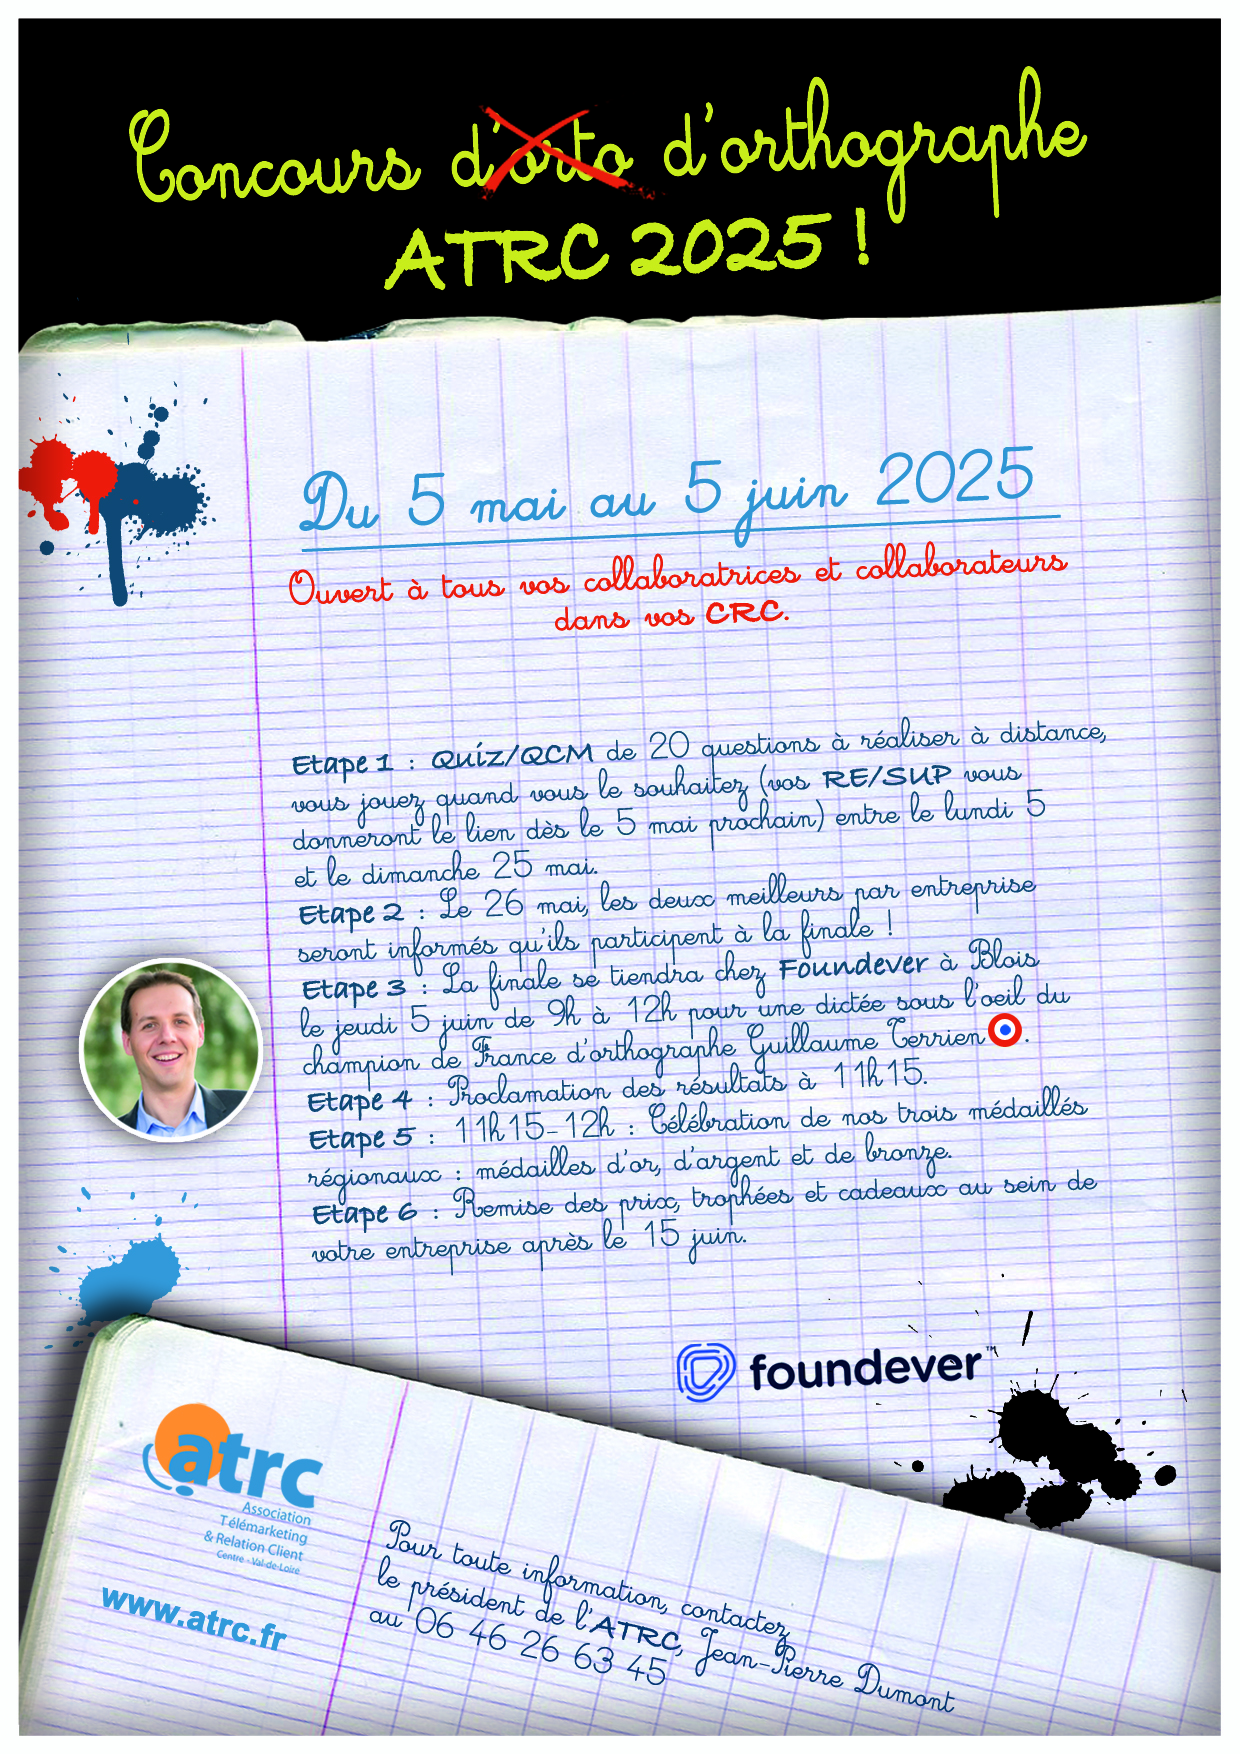 Concours d'orto d'orthographe
ATRC 2025 !
Du 5 mai au 5 juin 2025
Ouvert à tous vos collaboratrices et collaborateurs
dans vos CRC.
Etape 1 : Quiz/QCM de 20 questions à réaliser à distance,
vous jouez quand vous le souhaitez (vos RE/SUP vous
donneront le lien dès le 5 mai prochain) entre le lundi 5
et le dimanche 25 mai.
Etape 2 : Le 26 mai, les deux meilleurs par entreprise
seront informés qu'ils participent à la finale !
Etape 3 : La finale se tiendra chez Foundever à Blois
le jeudi 5 juin de 9h à 12h pour une dictée sous l'oeil du
champion de France d'orthographe Guillaume Terrien.
Etape 4 : Proclamation des résultats à 11h15.
Etape 5 : 11h15-12h : Célébration de nos trois médaillés
régionaux : médailles d'or, d'argent et de bronze.
Etape 6 : Remise des prix, trophées et cadeaux au sein de
votre entreprise après le 15 juin.
foundever™
atrc
Association
Télémarketing
& Relation Client
Centre - Val-de-Loire
www.atrc.fr
Pour toute information, contactez
le président de l'ATRC, Jean-Pierre Dumont
au 06 46 26 63 45